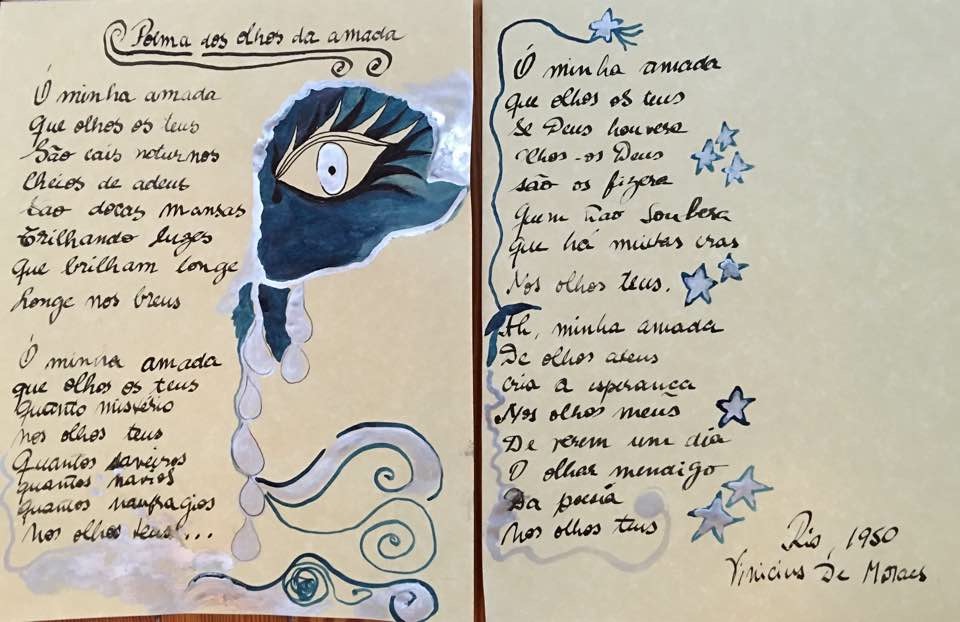 Poema dos olhos da amada
Ó minha amada
Que olhos os teus
São cais noturnos
Cheios de adeus
São docas mansas
Trilhando luzes
Que brilham longe
Longe nos breus
Ó minha amada
que olhos os teus
Quanto mistério
nos olhos teus
Quantos saveiros
quantos navios
quantos naufragios
Nos olhos teus ...
Ó minha amada
que olhos os teus
Se Deus houvera
são os fizera
Quem não soubera
que há muitas eras
Nos olhos teus.
Ah, minha amada
De olhos ateus
cria a esperança
Nos olhos meus
De verem um dia
O olhar mendigo
Da poesia
Nos olhos teus
Rio, 1950
Vinicius De Moraes